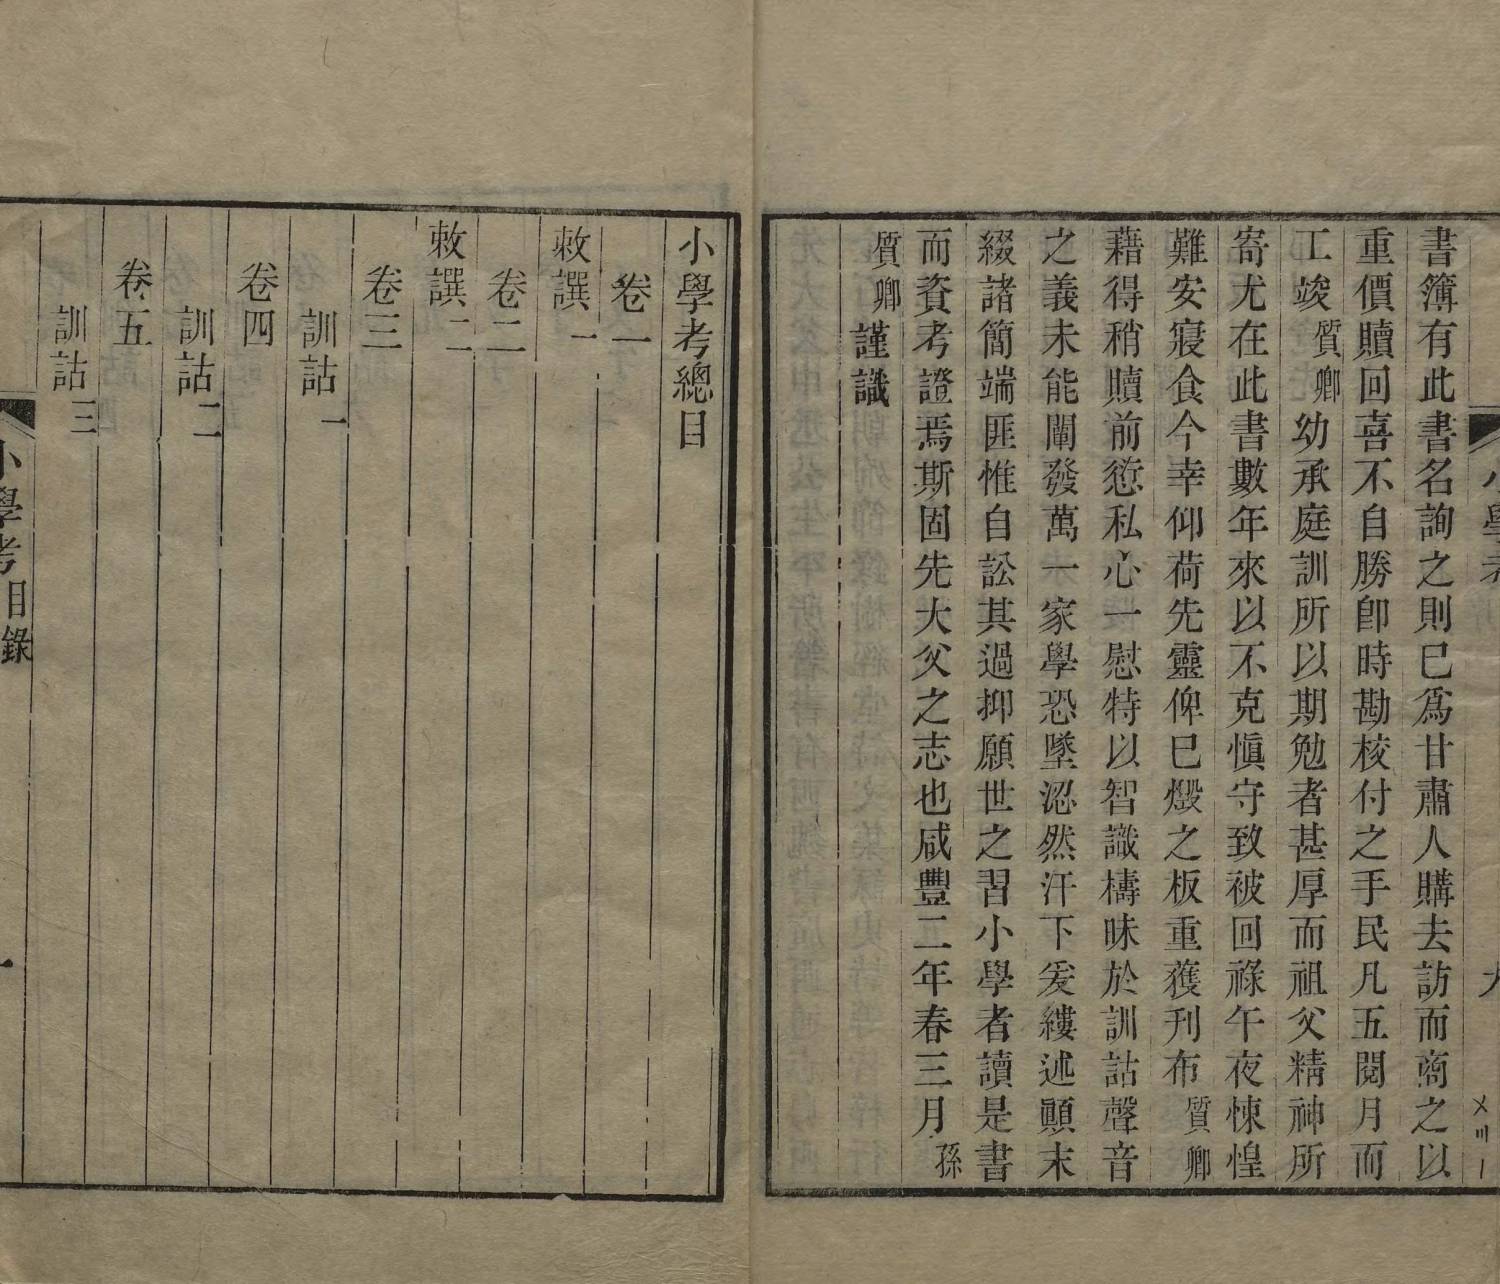 書簿有此書名詢之則已爲甘肅人購去訪而啇之以
重價贖回喜不自勝卽時勘校付之手民凡五閱月而
工竣質卿幼承庭訓所以期勉者甚厚而祖父精神所
寄尤在此書數年來以不克愼守致被回祿午夜悚惶
難安寢食今幸仰荷先靈俾已燬之板重獲刊布質卿
藉得稍贖前愆私心一慰特以智識檮昧於訓詁聲音
之義未能闡發萬一家學恐墜涊然汗下爰縷述顚末
綴諸簡端匪惟自訟其過抑願世之習小學者讀是書
而資考證焉斯固先大父之志也咸豐二年春三月孫
質卿謹識
小學考總目
卷一
敕譔一
卷二
敕譔二
卷三
訓詁一
卷四
訓詁二
卷五
訓詁三
小學考目錄
一